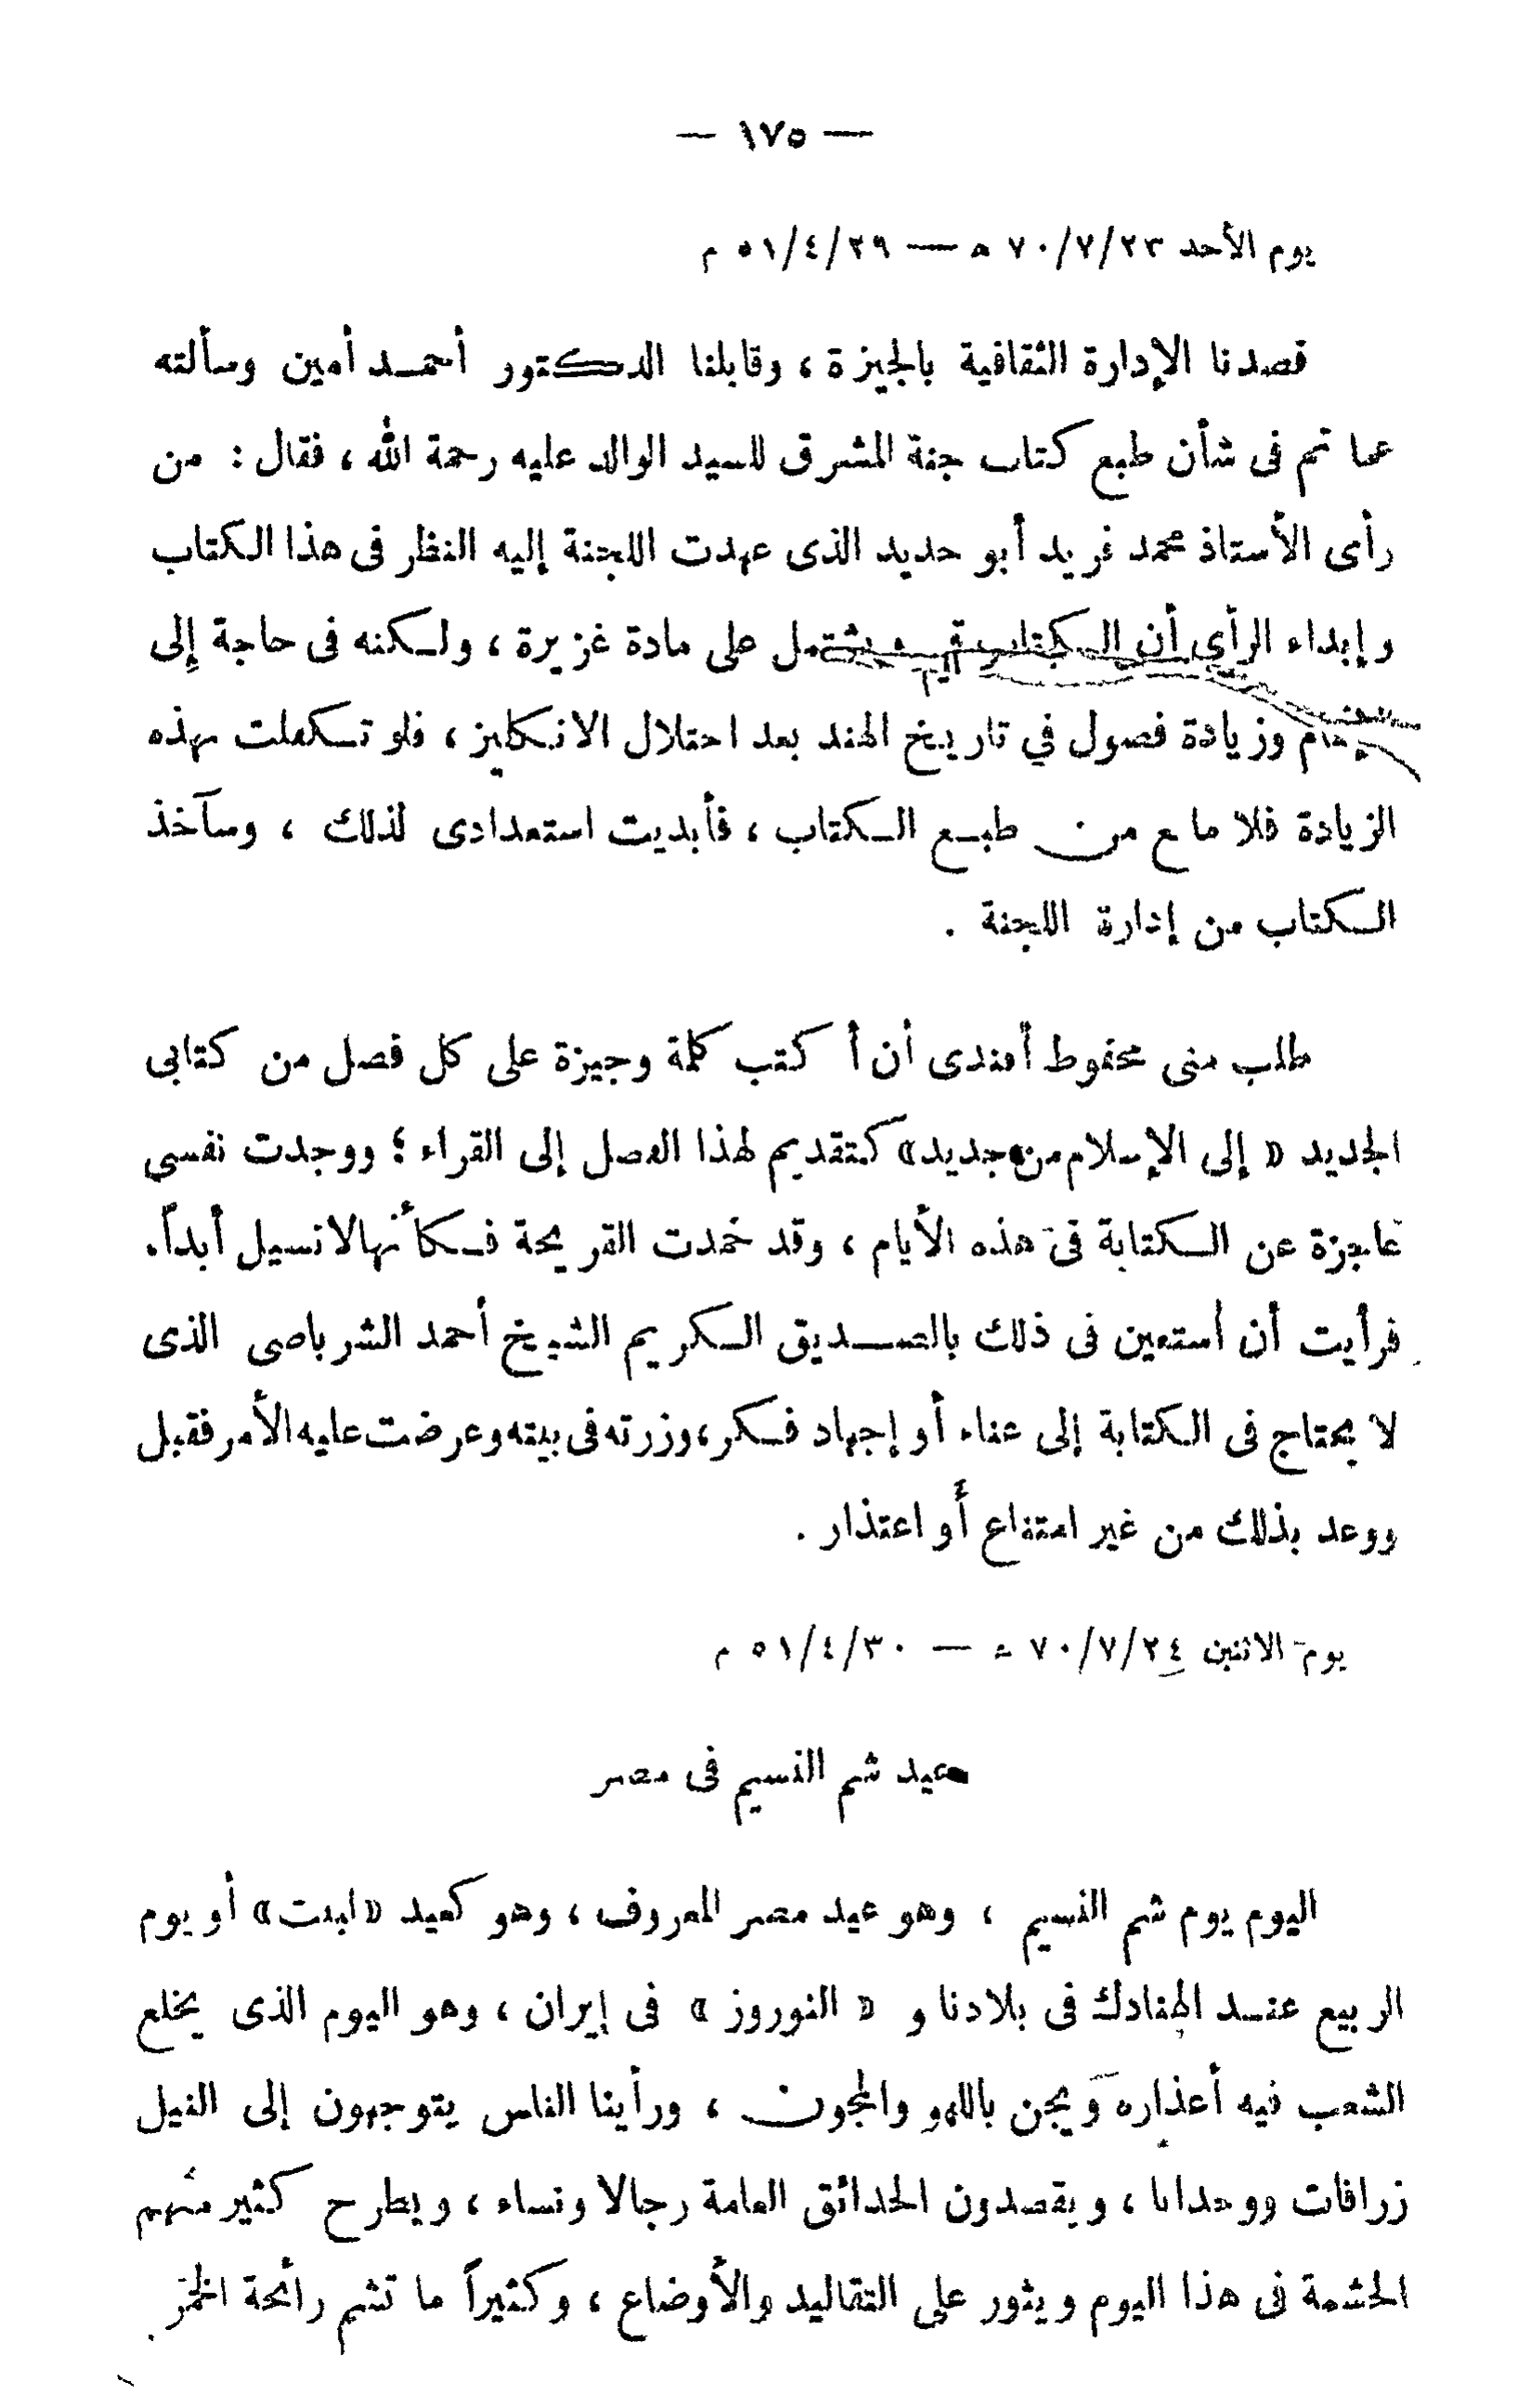 — ١٧٥ —
يوم الأحد ٧٠/٧/٢٣ ه — ٥١/٤/٢٩ م
قصدنا الإدارة الثقافية بالجيزة ، وقابلنا الدكتور أحمد أمين وسألته
عما تم فى شأن طبع كتاب جنة المشرق للسيد الوالد عليه رحمة الله ، فقال : من
رأى الأستاذ محمد فريد أبو حديد الذى عهدت اللجنة إليه النظر فى هذا الكتاب
وإبداء الرأى أن الكتاب يشتمل على مادة غزيرة ، ولكنه فى حاجة إلى
وزيادة فصول في تاريخ الهند بعد احتلال الانكليز ، فلو تكملت بهذه
الزيادة فلا مانع من طبع الكتاب ، فأبديت استعدادى لذلك ، وسآخذ
الكتاب من إدارة اللجنة .
طلب منى محفوظ أفندى أن أكتب كلمة وجيزة على كل فصل من كتابى
الجديد « إلى الإسلام من جديد » كتقديم لهذا الفصل إلى القراء ؛ ووجدت نفسى
عاجزة عن الكتابة فى هذه الأيام ، وقد خمدت القريحة فكأنها لا تسيل أبداً .
فرأيت أن أستعين فى ذلك بالصديق الكريم الشيخ أحمد الشرباصى الذى
لا يحتاج فى الكتابة إلى عناء أو إجهاد فكر ، وزرته فى بيته وعرضت عليه الأمر فقبل
ووعد بذلك من غير امتناع أو اعتذار .
يوم الاثنين ٧٠/٧/٢٤ ه — ٥١/٤/٣٠ م
عيد شم النسيم فى مصر
اليوم يوم شم النسيم ، وهو عيد مصر المعروف ، وهو كعيد « بسنت » أو يوم
الربيع عند الهنادك فى بلادنا و « النوروز » فى إيران ، وهو اليوم الذى يخلع
الشعب فيه أعذاره ويجن باللهو والمجون ، ورأينا الناس يتوجهون إلى النيل
زرافات ووحدانا ، ويقصدون الحدائق العامة رجالا ونساء ، ويطرح كثير منهم
الحشمة فى هذا اليوم ويثور على التقاليد والأوضاع ، وكثيراً ما تشم رائحة الخمر